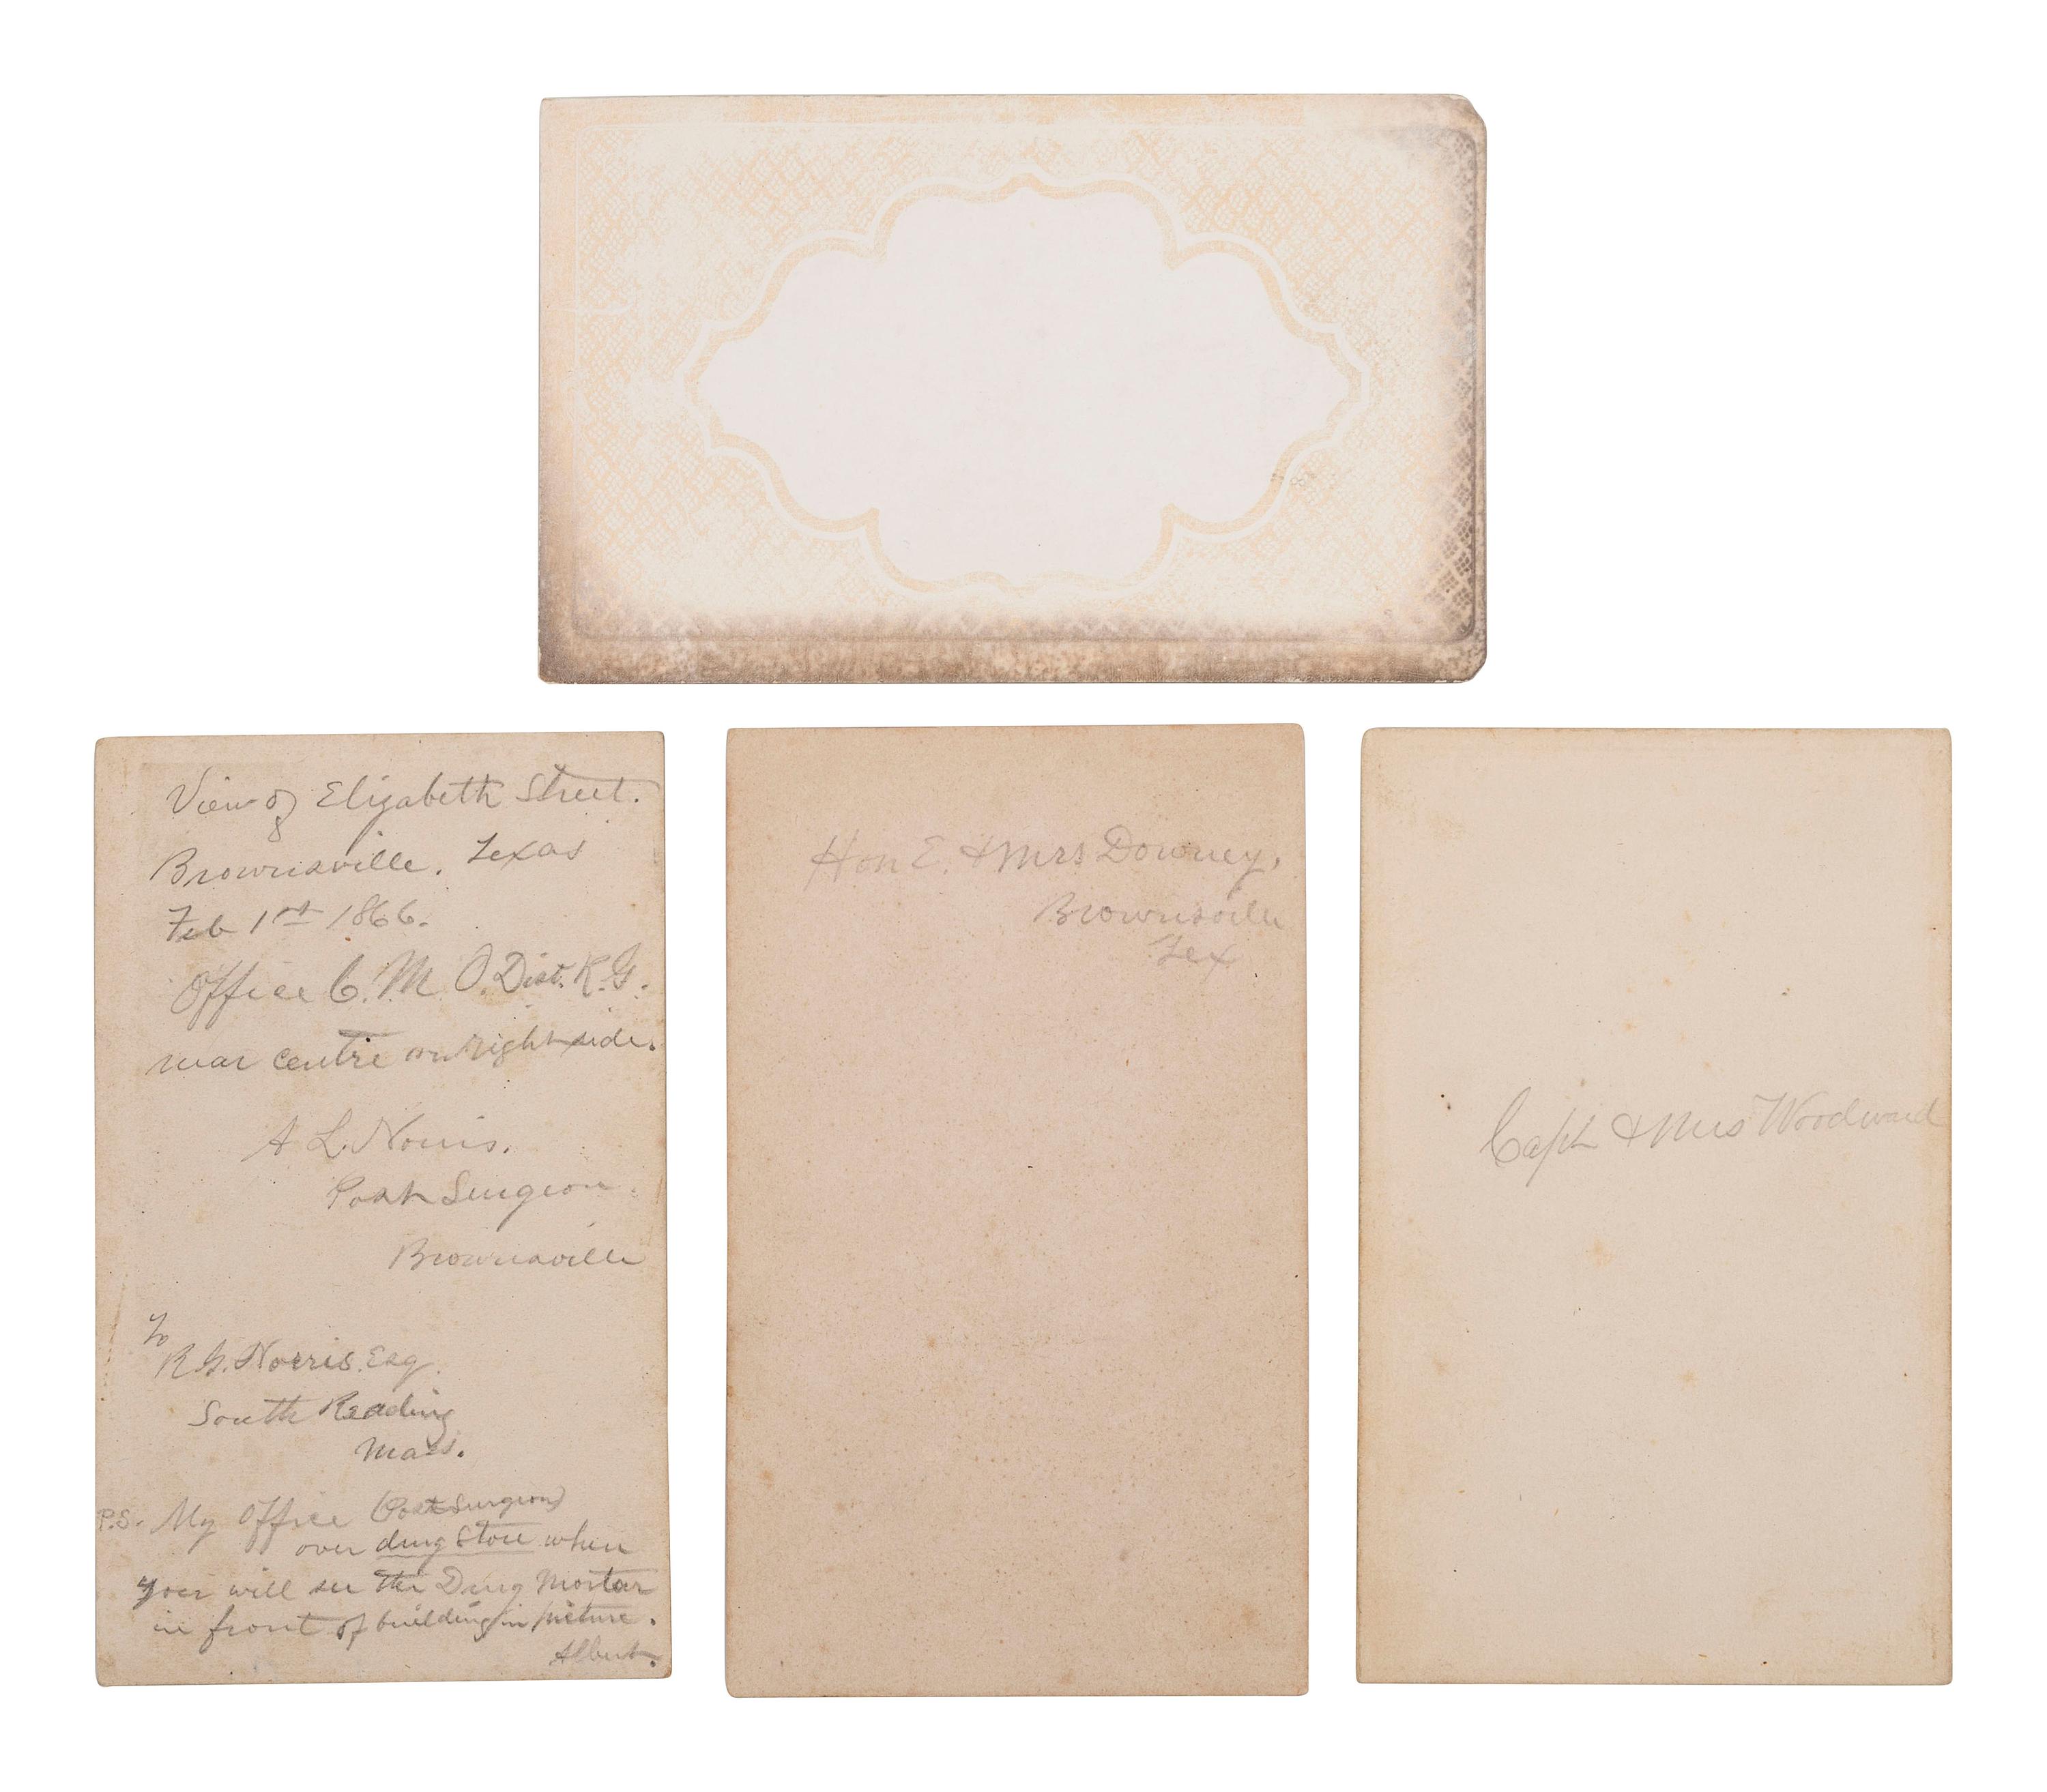 View of Elizabeth Street.
Brownsville, Texas
Feb 1st 1866.
Office C. M. O. Dist. R. G.
near centre on right side.
A L. Norris.
Post Surgeon.
Brownsville
To
R G. Norris. Esq.
South Reading
Mass.
P.S. My Office (Post Surgeon)
over drug store when
you will see the Drug Mortar
in front of building in picture.
Albert.
Hon E. & Mrs Downey,
Brownsville
Tex
Capt & Mrs Woodward